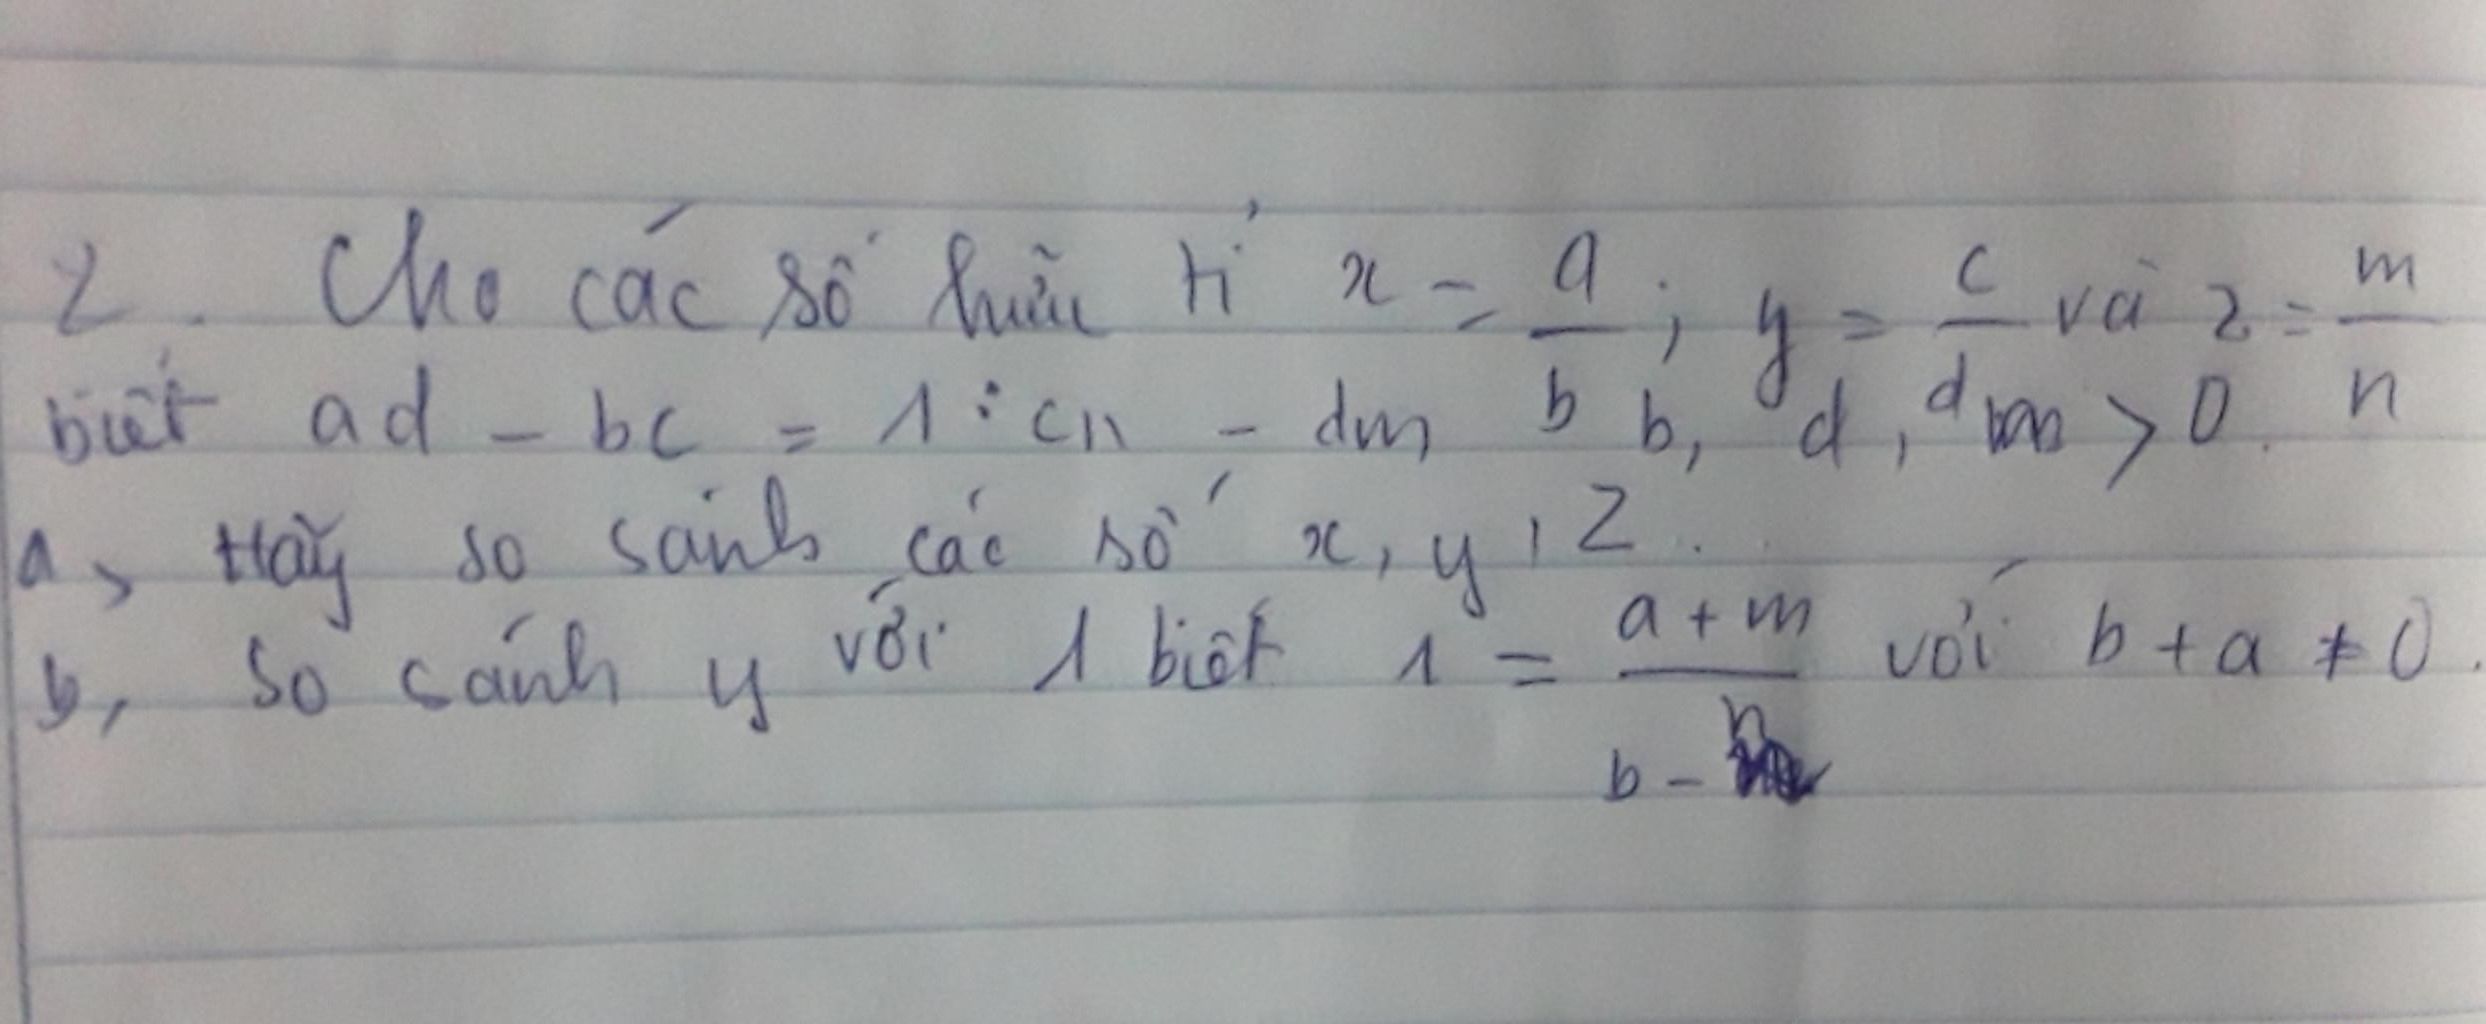 2. Cho các số hữu tỉ x = a/b ; y = c/d và z = m/n
biết ad - bc = 1 : cn - dm b, d, m > 0.
a, Hãy so sánh các số x, y, z.
b, So sánh y với 1 biết 1 = (a + m)/(b - n) với b + a ≠ 0.